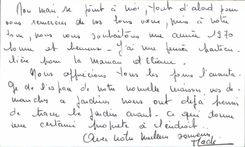 Mon mari se joint à moi, tout d'abord pour
vous remercier de vos bons vœux, puis à notre
tour, nous vous souhaitons une année 1970
bonne et heureuse. J'ai une pensée particu-
lière pour la maman d'Eliane.
Nous apprécions tous les jours l'avanta-
ge de disposer de notre nouvelle maison, nos di-
manches à jardiner nous ont déjà permis
de tracer le jardin avant. ce qui donne
une certaine propreté à l'endroit.
Avec notre meilleur souvenir,